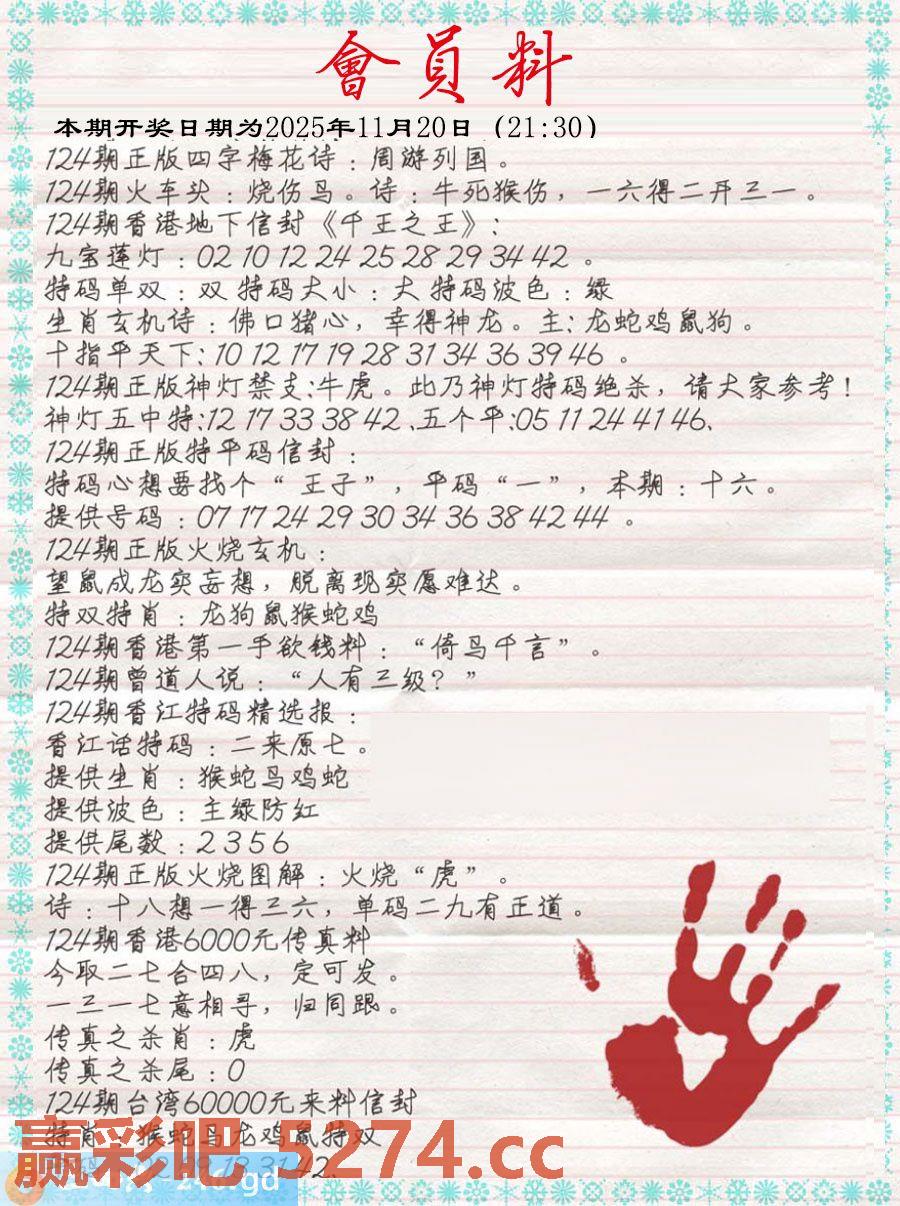 會員料
本期开奖日期为2025年11月20日（21:30）
124期正版四字梅花诗：周游列国。
124期火车头：烧伤鸟。诗：牛死猴伤，一六得二开三一。
124期香港地下信封《千王之王》：
九宝莲灯：02 10 12 24 25 28 29 34 42 。
特码单双：双 特码大小：大 特码波色：绿
生肖玄机诗：佛口猪心，幸得神龙。主：龙蛇鸡鼠狗。
十指平天下：10 12 17 19 28 31 34 36 39 46 。
124期正版神灯禁支：牛虎。此乃神灯特码绝杀，请大家参考！
神灯五中特：12 17 33 38 42 、五个平：05 11 24 41 46、
124期正版特平码信封：
特码心想要找个“王子”，平码“一”，本期：十六。
提供号码：07 17 24 29 30 34 36 38 42 44 。
124期正版火烧玄机：
望鼠成龙实妄想，脱离现实愿难达。
特双特肖：龙狗鼠猴蛇鸡
124期香港第一手欲钱料：“倚马千言”。
124期曾道人说：“人有三级？”
124期香江特码精选报：
香江话特码：二来原七。
提供生肖：猴蛇马鸡蛇
提供波色：主绿防红
提供尾数：2 3 5 6
124期正版火烧图解：火烧“虎”。
诗：十八想一得三六，单码二九有正道。
124期香港6000元传真料
今取二七合四八，定可发。
一三一七意相寻，归同跟。
传真之杀肖：虎
传真之杀尾：0
124期台湾60000元来料信封
特肖：猴蛇马龙鸡鼠特双
赢彩吧.5274.cc
31 42、